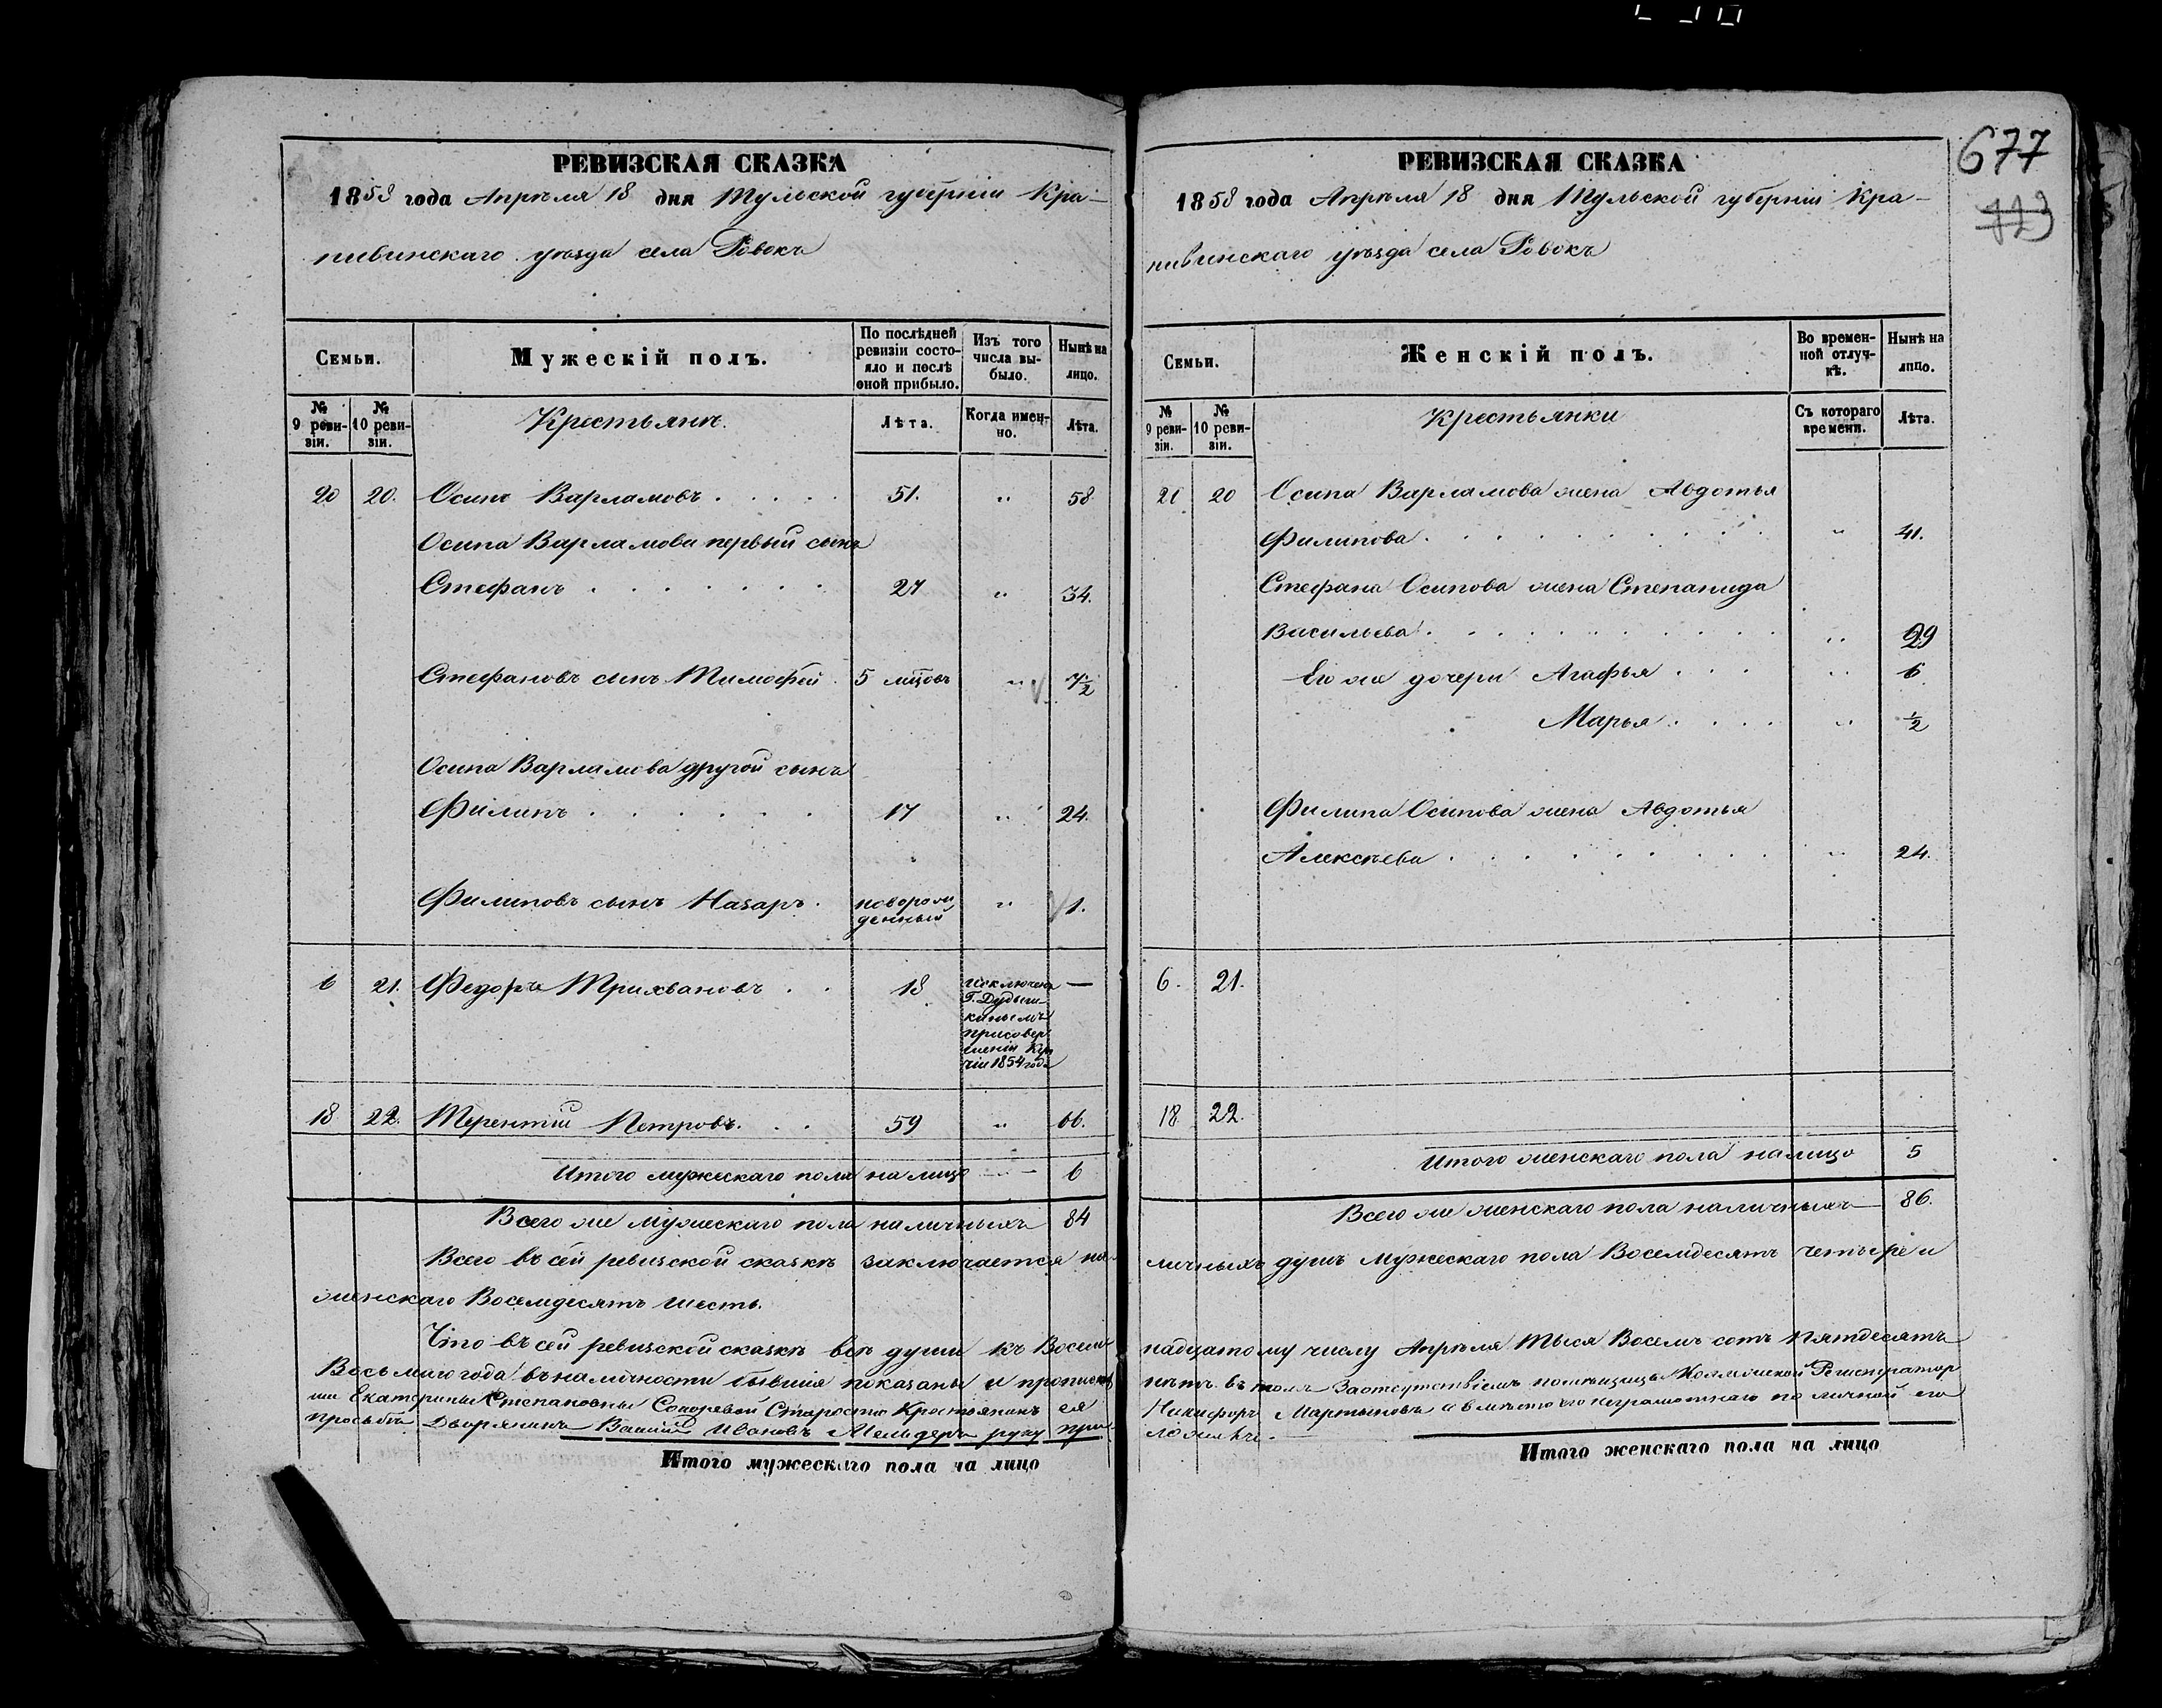 677
РЕВИЗСКАЯ СКАЗКА
1858 года Апрѣля 18 дня Тульской губерніи Кра-
пивинскаго уѣзда села Ровокъ
Семьи.
Мужескій полъ.
По послѣдней ревизіи состояло и послѣ оной прибыло.
Изъ того числа выбыло.
Нынѣ на лицо.
№ 9 ревизіи.
№ 10 ревизіи.
Крестьянъ.
Лѣта.
Когда именно.
Лѣта.
20 20. Осипъ Варламовъ 51. " 58
Осипа Варламова первый сынъ
Стефанъ 27 " 34.
Стефановъ сынъ Тимофей 5 мцовъ " 7½
Осипа Варламова другой сынъ
Филипъ 17 " 24.
Филиповъ сынъ Назаръ новорожденный " 1.
6 21. Федоръ Трихвановъ 18 исключенъ —
Г. Дудыш-
кинымъ
присовер
шеніи куп
чіи 1854 года
18 22. Терентій Петровъ. 59 " 66.
Итого мужескаго пола на лицо 6
Всего же мужескаго пола наличныхъ 84
Всего въ сей ревизской сказкѣ заключается на-
женскаго Восемдесятъ шесть.
Что въ сей ревизской сказкѣ всѣ души къ Восем
Восьмаго года въ наличности бывшія показаны и прописн
ши Екатерины Степановны Староста Крестьянинъ ея
просьбѣ Дворянинъ Ивановъ руку при-
Итого мужескаго пола на лицо
РЕВИЗСКАЯ СКАЗКА
1858 года Апрѣля 18 дня Тульской губерніи Кра-
пивинскаго уѣзда села Ровокъ
Семьи.
Женскій полъ.
Во временной отлучкѣ.
Нынѣ на лицо.
№ 9 ревизіи.
№ 10 ревизіи.
Крестьянки
Съ котораго времени.
Лѣта.
20 20 Осипа Варламова жена Авдотья
Филипова " 41.
Стефана Осипова жена Степанида
Васильева " 29
Его же дочери Агафья " 6
Марья " ½
Филипа Осипова жена Авдотья
Алексѣева " 24.
6. 21.
18 22.
Итого женскаго пола налицо 5
Всего же женскаго пола наличныхъ 86.
личныхъ душъ мужескаго пола Восемдесятъ четыре и
надцатому числу Апрѣля Тыся Восемъ сотъ пятдесятъ
нѣтъ въ томъ Заотсутствіемъ помѣщицы Регистратор
Никифоръ Мартыновъ а вмѣсто его неграмотнаго по личной его
ложилъ.
Итого женскаго пола на лицо